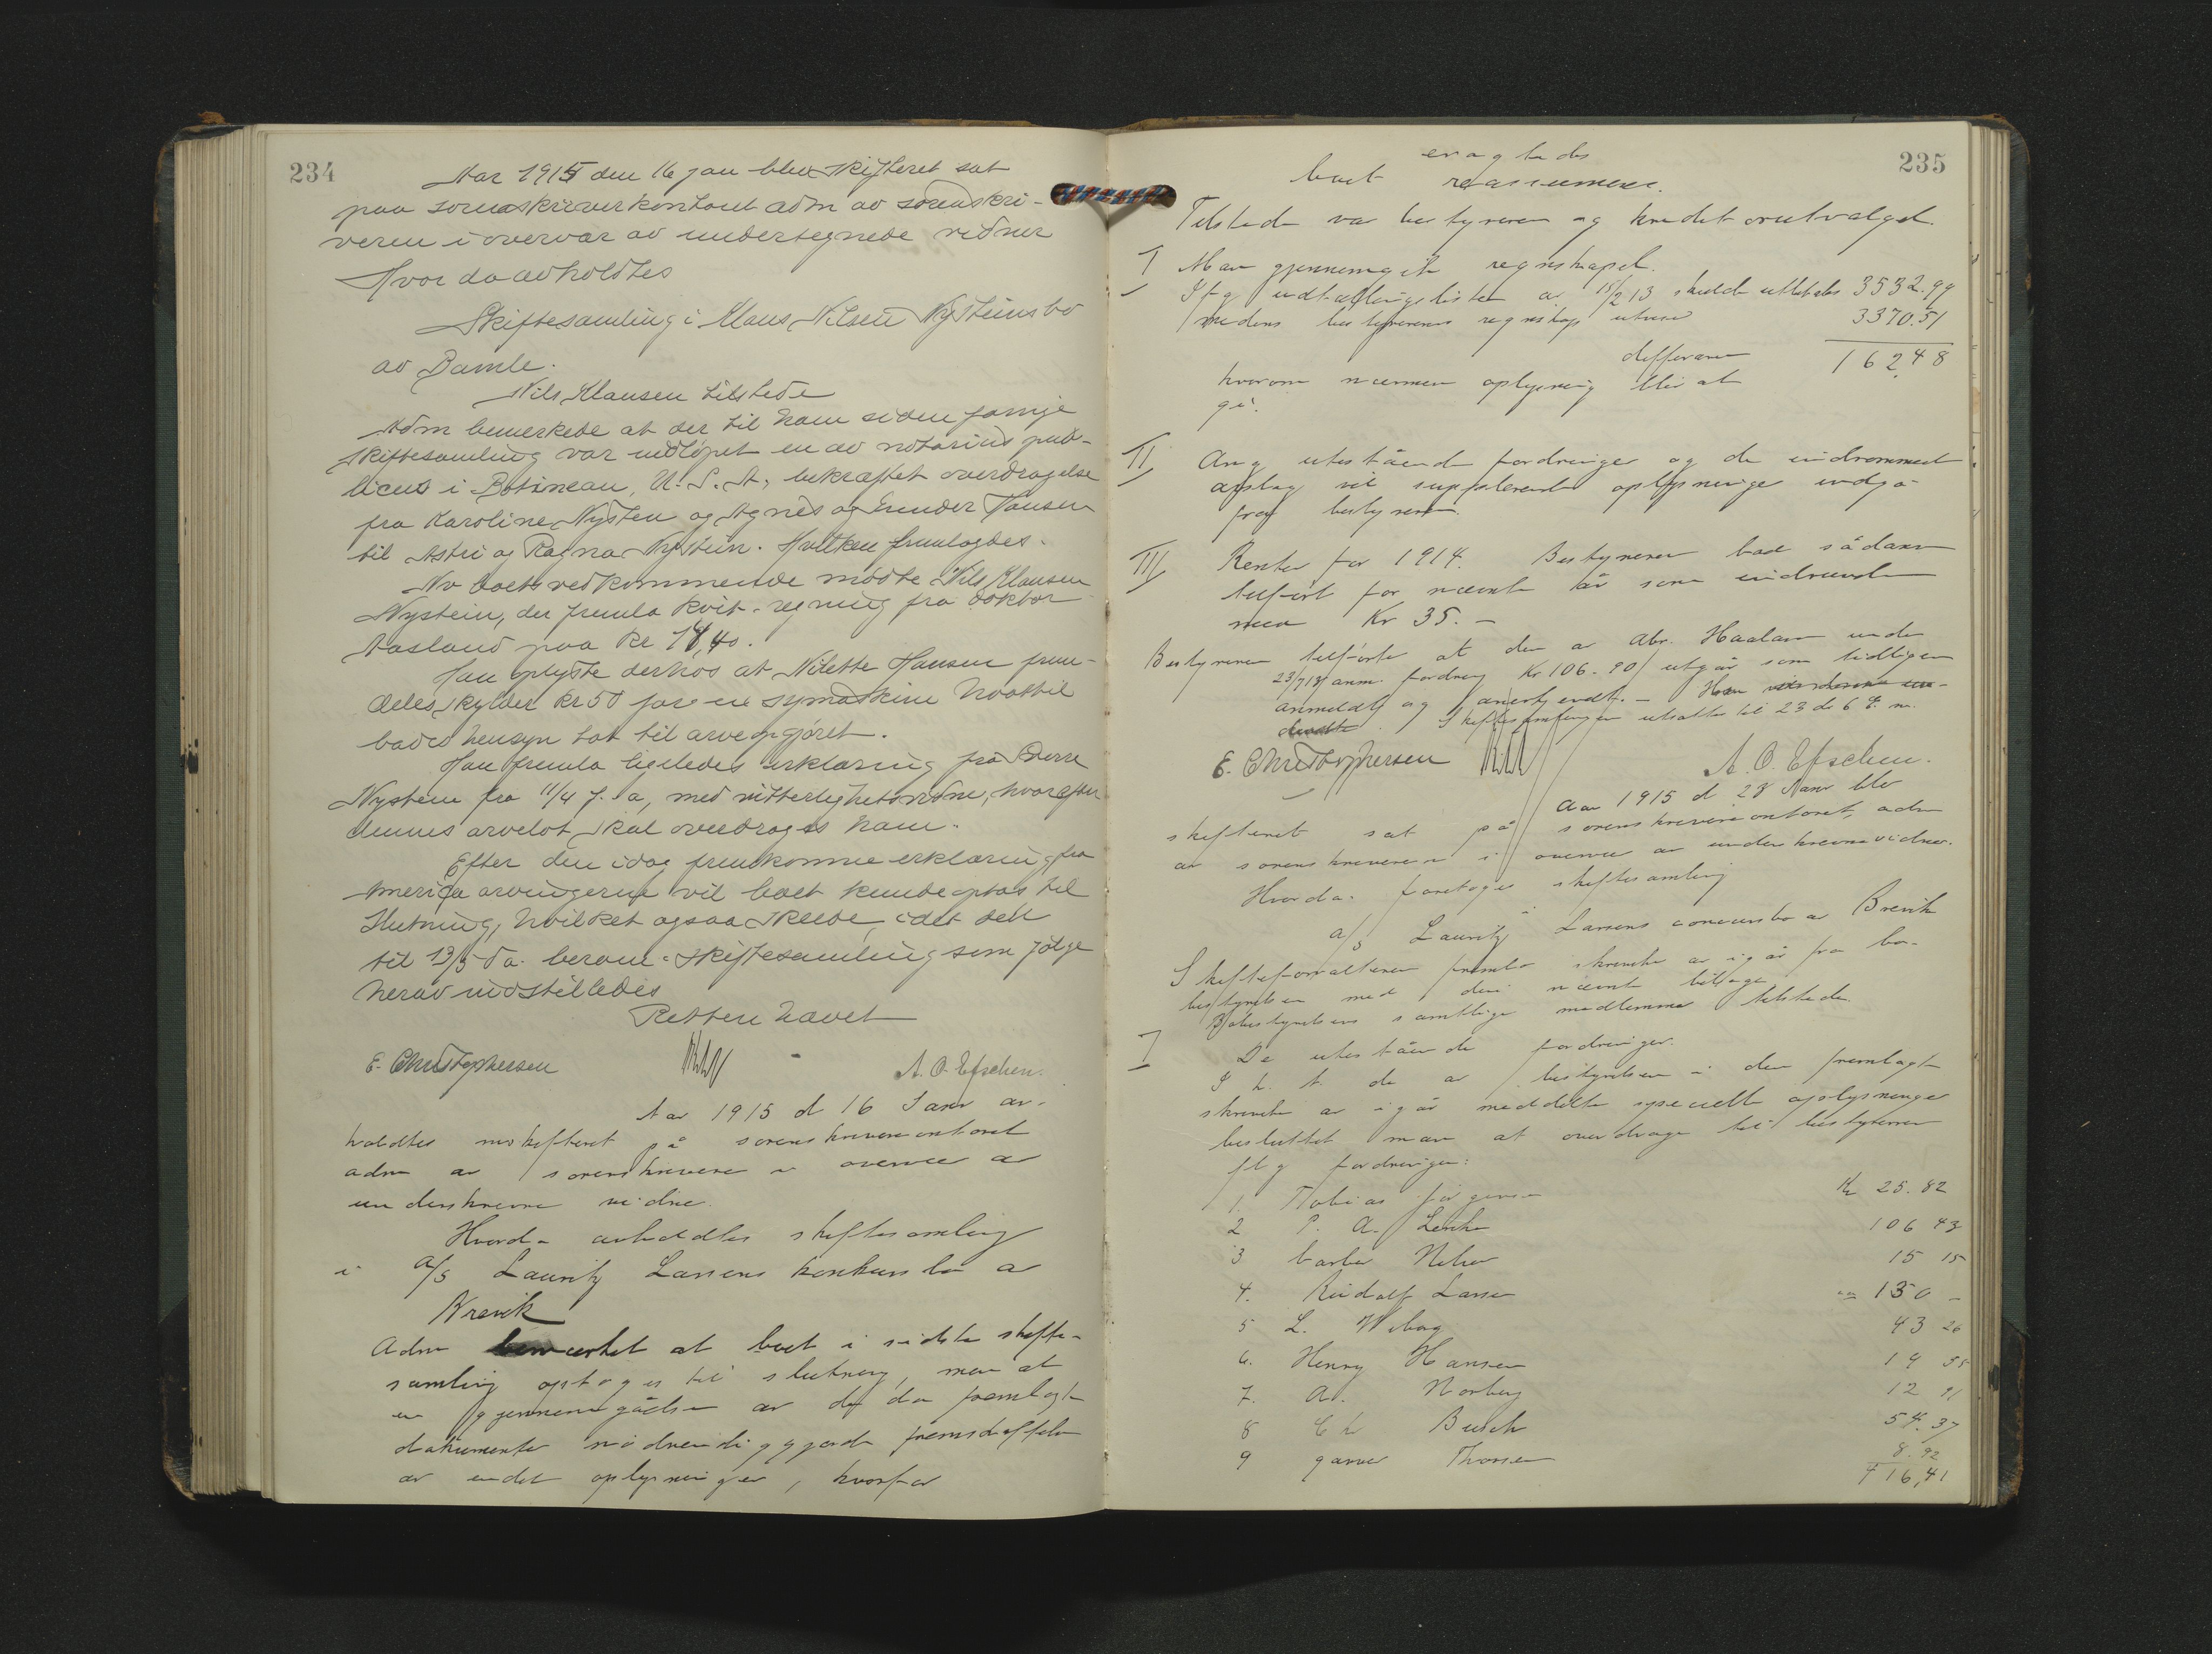 234
Aar 1915 den 16 jan blev skifteret sat
paa sorenskriverkontoret adm av sorenskri-
veren i overvær av undertegnede vidner
Hvor da avholdtes
Skiftesamling i Klaus Nilsen Nysteins bo
av Bamle.
Nils Klausen tilstede
Adm bemerkede at der til ham siden forrige
skiftesamling var indløpet en av notarius pub-
licus i Botineau, U.S.A. bekræftet overdragelse
fra Karoline Nysten og Agnes og Hansen
til Astri og Ragna Nystein. Hvilken fremlagdes.
Av boets vedkommende mødte Nils Klausen
Nystein, der fremla kvit. regning fra doktor
Aasland paa kr 18,40.
Han oplyste derhos at Nilette Hansen frem-
deles skylder kr 50 for en symaskine hvortil
bades hensyn tat til arveopgjøret.
Han fremla ligeledes erklæring fra
Nystein fra 11/4 f.a, med vitterlighetsvidne, hvorefter
dennes arvelot skal overdrages ham.
Efter den idag fremkomne erklæring fra
America arvingerne vil boet kunde optas til
slutning, hvilket ogsaa skede, idet den
til 13/5 d.a. beram. skiftesamling som følge
herav indstilledes
Retten hævet
E. Christophersen A. O. Efschen.
Aar 1915 d 16 Janr av-
holdtes skifteret på sorenskriverkontoret
adm av sorenskriveren i overvær av
underskrevne vidne.
Hvorda avholdtes skiftesamling
i A/S Lauritz Larsens konkursbo av
Brevik
Adm bemerket at boet i sidste skifte-
samling optoges til slutning, men at
en gjennemgåelse av de da fremlagte
dokumenter nødvendiggjorde fremskaffelse
av endel oplysninger, hvorfor
235
eragtedes
boet reassumeres.
Tilstede var bestyreren og kreditorutvalget.
I Man gjennemgik regnskapet.
Ifg utbetalingslisten av 15/2 13 skulde utbetales 3532.99
medens bestyrerens regnskap utviser 3370.51
differanse 162.48
hvorom nærmere oplysning blir at
gi.
II Ang utestående fordringer og de indrømmede
afslag vil supplerende oplysninger indgå
fra bestyreren.
III Renter for 1914. Bestyreren bad sådanne
tilført for nævnte år som indvundne
med Kr 35.-
Bestyreren tilførte at den av Abr. Haaland under
23/7 13 anm. fordring Kr 106.90 utgår som tidligere
anmeldt og anerkjendt. - Han
Skiftesamlingen utsattes til 23 ds 6 E. m.
E. Christophersen A. O. Efschen.
Aar 1915 d 23 Janr blev
skifteret sat på sorenskriverkontoret, adm
av sorenskriveren i overvær av underskrevne vidner.
Hvorda foretoges skiftesamling
i
A/S Lauritz Larsens concursbo av Brevik
Skifteforvalteren fremla skrivelse av igår fra bo-
bestyrelsen med deri nævnte bilage
Bobestyrelsens samtlige medlemmer tilstede.
I De utestående fordringer.
I h. t. de av bestyrelsen i den fremlagte
skrivelse av igår meddelte specielle oplysninger
besluttet man at overdrage til bestyreren
flg fordringer:
1. Tobias Jørgensen Kr 25.82
2 P. A. Lerche 106 43
3 barber Nilsen 15 15
4. Rudolf Larsen 130 -
5 L. Wiborg 43 26
6. Henry Hansen 19 55
7. A. Norberg 12 91
8 Chr Busch 54.37
9 garver Thorsen 8.92
416,41